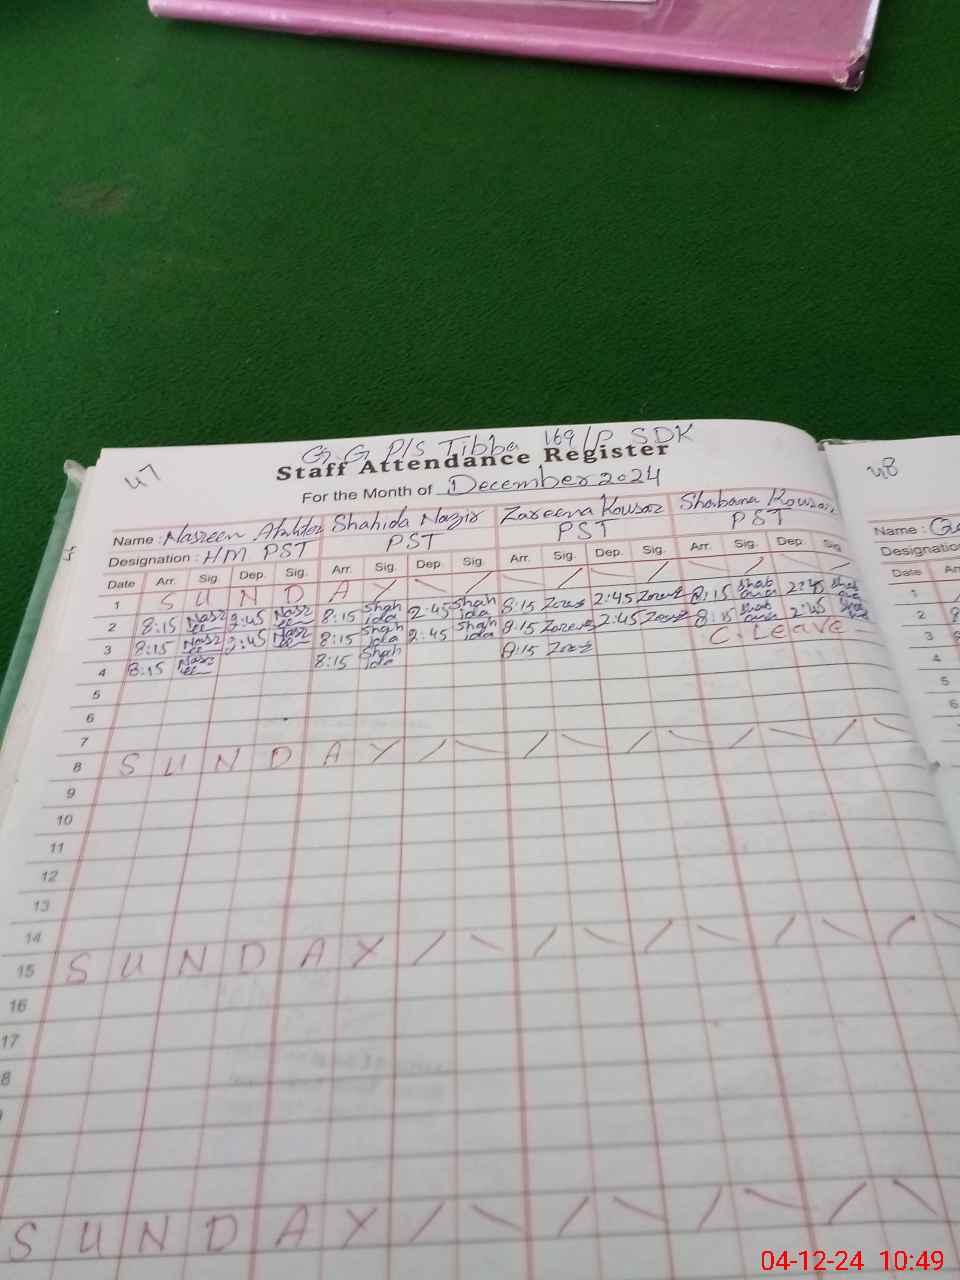 G.G P/S Tibba 169/P SDK
47
Staff Attendance Register
48
For the Month of December 2024
Name : Nasreen Shahida Nazir Zareena Kousar Shabana
Designation : HM PST PST PST PST
Date Arr. Sig. Dep. Sig. Arr. Sig. Dep. Sig. Arr. Sig. Dep. Sig. Arr. Sig. Dep. Sig
1 S U N D A Y
2 8:15 2:45 8:15 Shahida 2:45 Shahida 8:15 2:45 8:15 Shabana 2:45
3 8:15 2:45 8:15 Shahida 2:45 Shahida 8:15 2:45 8:15 Shabana 2:45
4 8:15 8:15 Shahida 8:15 C. Leave
5
6
7
8 S U N D A Y
9
10
11
12
13
14
15 S U N D A Y
16
17
8
S U N D A Y
Name :
Designatio
Date
1
2
3
4
5
6
04-12-24 10:49